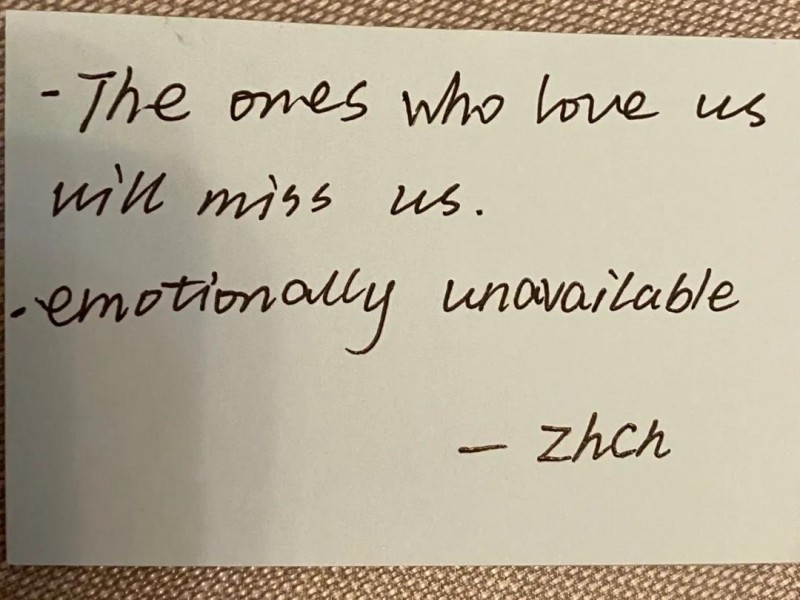 - The ones who love us
will miss us.
. emotionally unavailable
— zhch